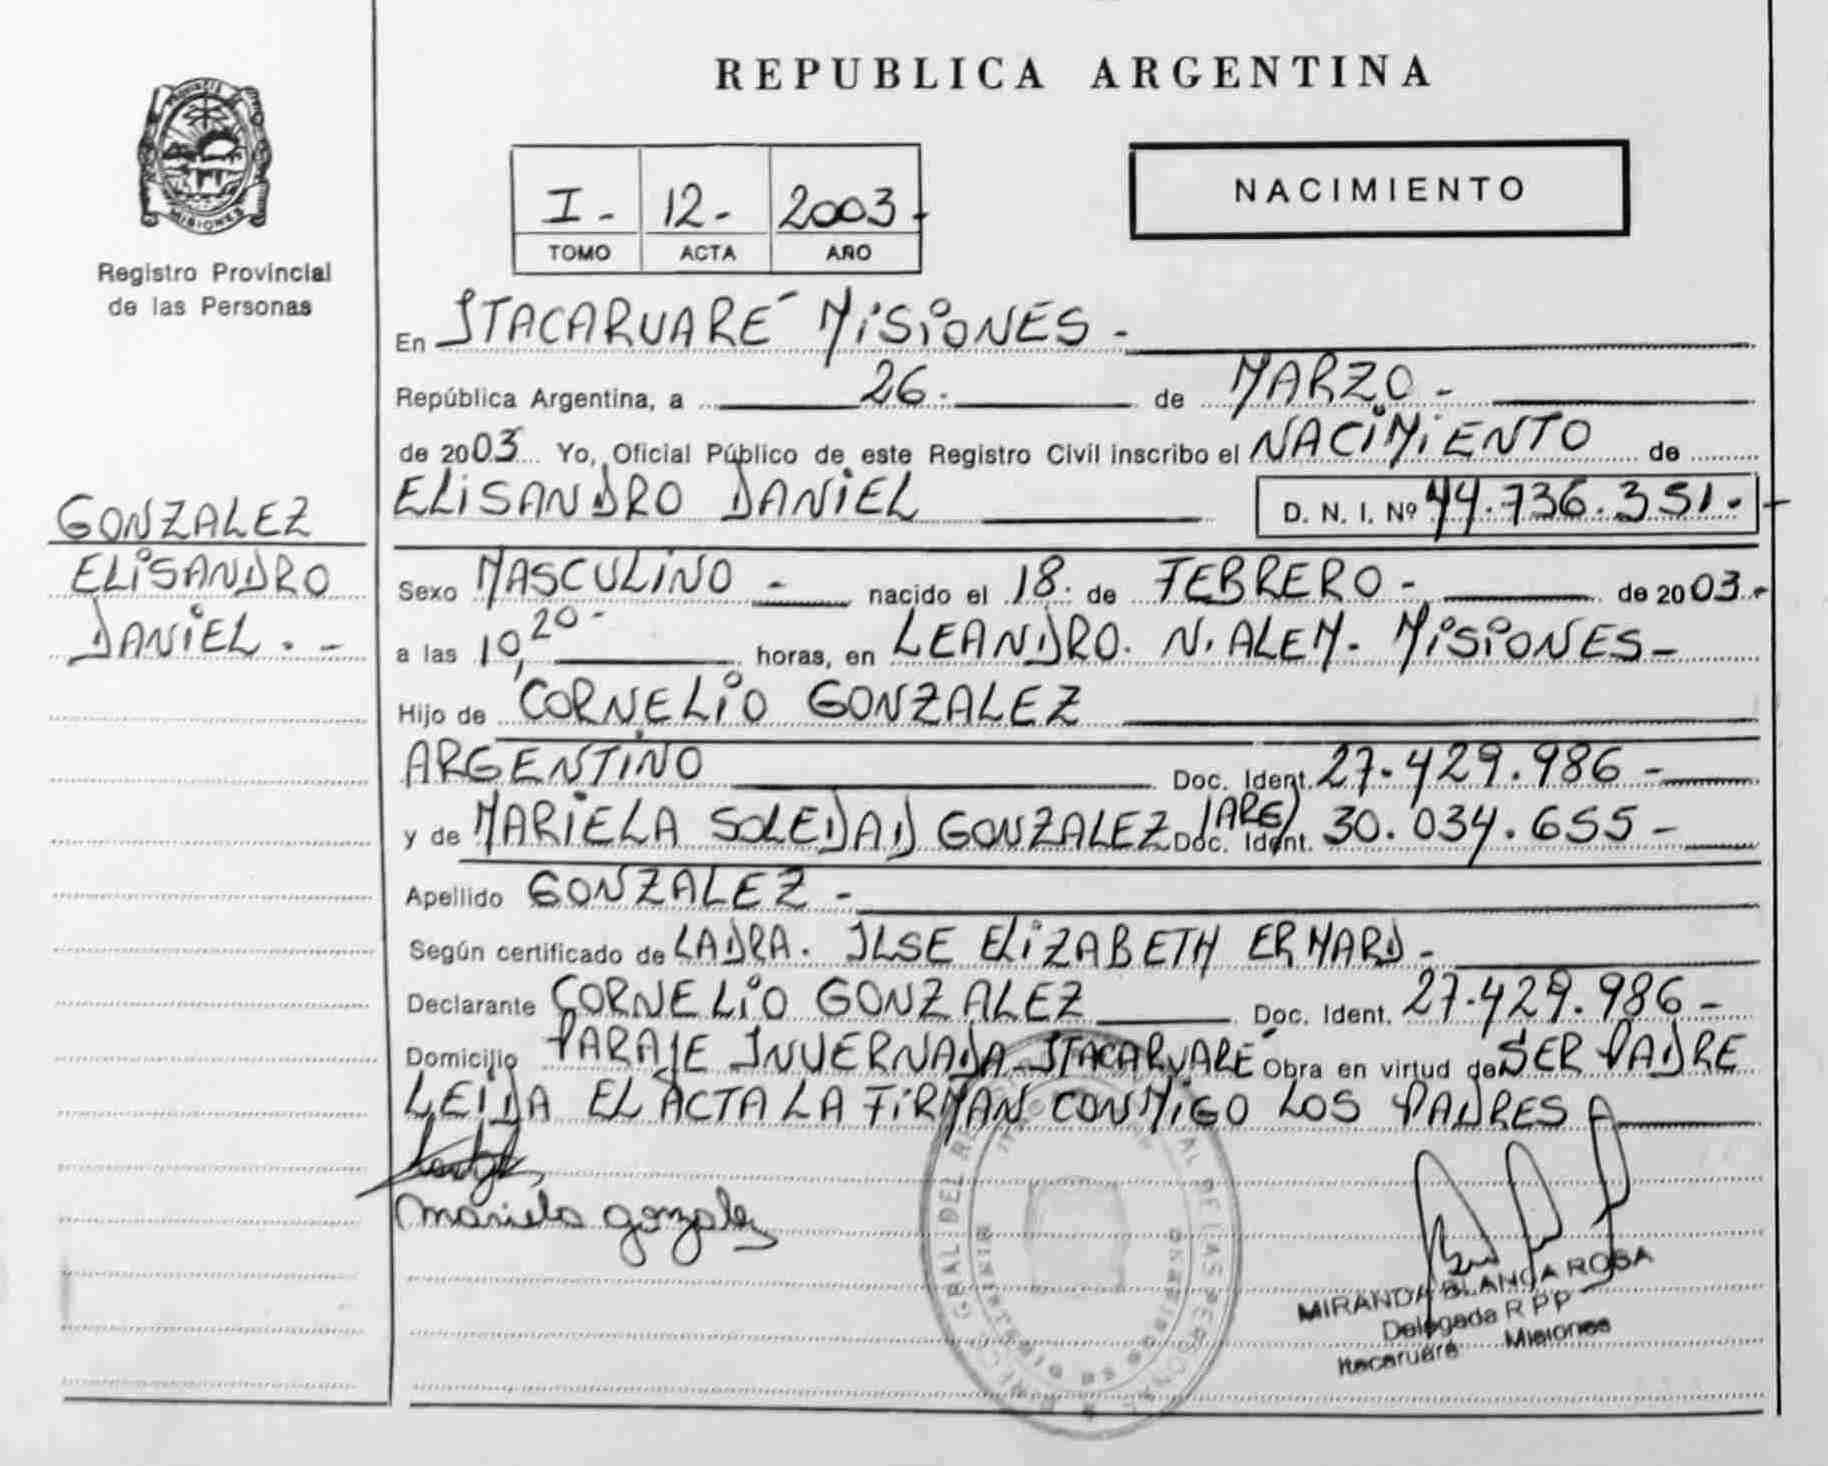 REPUBLICA ARGENTINA
PROVINCIA DE
MISIONES
Registro Provincial
de las Personas
I - 12 - 2003 -
TOMO ACTA AÑO
NACIMIENTO
En ITACARUARÉ MISIONES -
República Argentina, a 26 - de MARZO -
de 2003 Yo, Oficial Público de este Registro Civil inscribo el NACIMIENTO de
ELISANDRO DANIEL D. N. I. Nº 44.736.351 -
GONZALEZ
ELISANDRO
DANIEL . -
Sexo MASCULINO - nacido el 18 - de FEBRERO - de 2003 -
a las 10,20 - horas, en LEANDRO. N. ALEM - MISIONES -
Hijo de CORNELIO GONZALEZ
ARGENTINO Doc. Ident. 27.429.986 -
y de MARIELA SOLEDAD GONZALEZ (ARG) Doc. Ident. 30.034.655 -
Apellido GONZALEZ -
Según certificado de LA DRA. ILSE ELIZABETH ERHARD -
Declarante CORNELIO GONZALEZ Doc. Ident. 27.429.986 -
Domicilio PARAJE INVERNADA - ITACARUARÉ Obra en virtud de SER PADRE
LEIDA EL ACTA LA FIRMAN CONMIGO LOS PADRES
mariela gonzalez
MIRANDA BLANCA ROSA
Delegada R P P
Itacaruaré Misiones